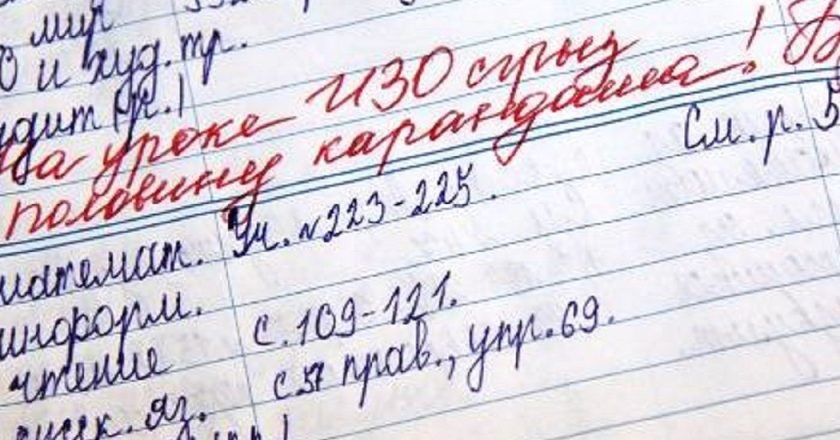 мир
и худ.тр.
На уроке ИЗО сгрыз
половину карандаша!
См. р.
математ. Уч. №223-225.
информ.
чтение с.109-121.
русск. яз. с.57 прав., упр.69.